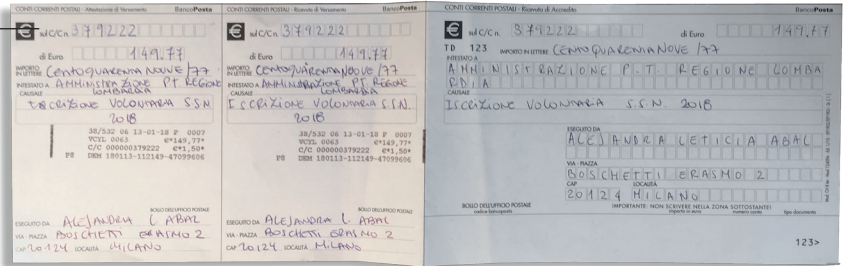 CONTI CORRENTI POSTALI - Attestazione di Versamento BancoPosta
€ sul C/C n. 379222
di Euro 149.77
IMPORTO IN LETTERE CENTOQUARENTA NOVE /77
INTESTATO A AMMINISTRAZIONE P.T REGIONE LOMBARDIA
CAUSALE
ISCRIZIONE VOLONTARIA S.S.N
2018
38/532 06 13-01-18 P 0007
VCYL 0063 €*149,77*
C/C 000000379222 €*1,50*
P8 DEM 180113-112149-47099606
BOLLO DELL'UFFICIO POSTALE
ESEGUITO DA ALEJANDRA L ABAL
VIA - PIAZZA BOSCHETTI ERASMO 2
CAP 20124 LOCALITÀ MILANO
CONTI CORRENTI POSTALI - Ricevuta di Versamento BancoPosta
€ sul C/C n. 379222
di Euro 149.77
IMPORTO IN LETTERE CENTOQUARENTANOVE /77
INTESTATO A AMMINISTRAZIONE PT REGIONE LOMBARDIA
CAUSALE
ISCRIZIONE VOLONTARIA S.S.N.
2018
38/532 06 13-01-18 P 0007
VCYL 0063 €*149,77*
C/C 000000379222 €*1,50*
P8 DEM 180113-112149-47099606
BOLLO DELL'UFFICIO POSTALE
ESEGUITO DA ALEJANDRA L ABAL
VIA - PIAZZA BOSCHETTI ERASMO 2
CAP 20124 LOCALITÀ MILANO
CONTI CORRENTI POSTALI - Ricevuta di Accredito BancoPosta
€ sul C/C n. 379222 di Euro 149.77
TD 123 IMPORTO IN LETTERE CENTOQUARENTANOVE /77
INTESTATO A
AMMINISTRAZIONE P.T. REGIONE LOMBA
RDIA
CAUSALE
ISCRIZIONE VOLONTARIA S.S.N. 2018
ESEGUITO DA
ALEJANDRA LETICIA ABAL
VIA - PIAZZA
BOSCHETTI ERASMO 2
CAP LOCALITÀ
20124 MILANO
BOLLO DELL'UFFICIO POSTALE
codice bancoposta
IMPORTANTE: NON SCRIVERE NELLA ZONA SOTTOSTANTE!
importo in euro numero conto tipo documento
123>